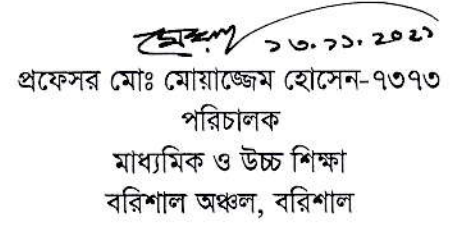 ১৩.১১.২০২১
প্রফেসর মোঃ মোয়াজ্জেম হোসেন-৭৩৭৩
পরিচালক
মাধ্যমিক ও উচ্চ শিক্ষা
বরিশাল অঞ্চল, বরিশাল